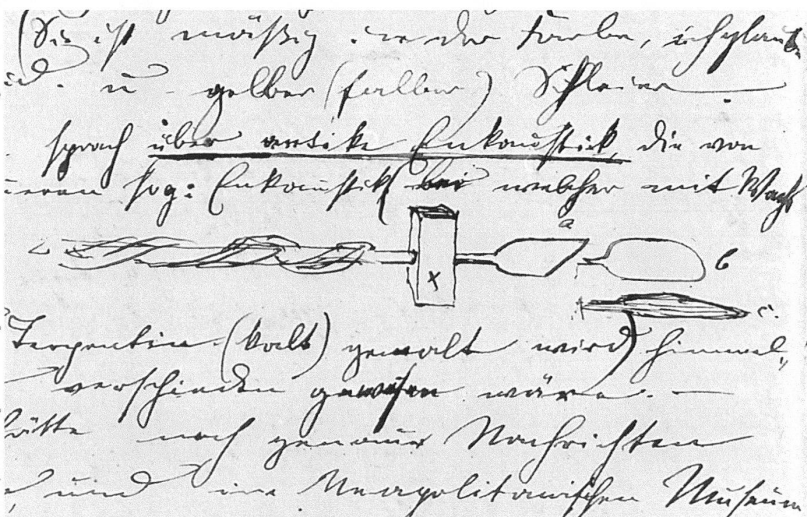 (Sie ist mäßig in der Farbe, ich glaube
u gelber (falber) Schleier
sprach über antike Enkaustick, die von
sog: Enkaustik (bei welcher mit Wachs
a
x b
c.
Terpentin (kalt) gemalt wird) himmel,,
verschieden gewesen wäre. —
hätte noch genaue Nachrichten
und im Neapolitanischen Museum